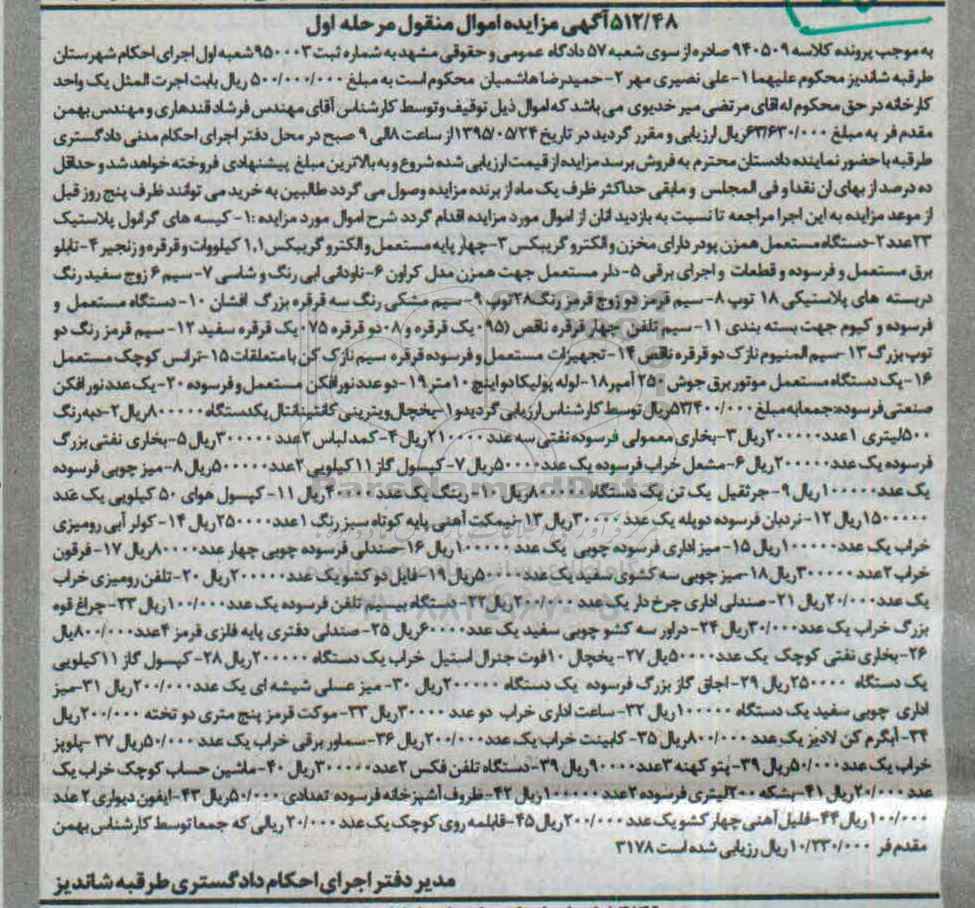 ۵۱۲/۴۸ آگهی مزایده اموال منقول مرحله اول
به موجب پرونده کلاسه ۹۴۰۵۰۹ صادره از سوی شعبه ۵۷ دادگاه عمومی و حقوقی مشهد به شماره ثبت ۹۵۰۰۰۳ شعبه اول اجرای احکام شهرستان
طرقبه شاندیز محکوم علیهما ۱- علی نصیری مهر ۲- حمیدرضا هاشمیان محکوم است به مبلغ ۵۰۰/۰۰۰/۰۰۰ ریال بابت اجرت المثل یک واحد
کارخانه در حق محکوم له اقای مرتضی میر خدیوی می باشد که اموال ذیل توقیف و توسط کارشناس آقای مهندس فرشاد قندهاری و مهندس بهمن
مقدم فر به مبلغ ۶۳/۶۳۰/۰۰۰ریال ارزیابی و مقرر گردید در تاریخ ۱۳۹۵/۰۵/۲۴ از ساعت ۸ الی ۹ صبح در محل دفتر اجرای احکام مدنی دادگستری
طرقبه با حضور نماینده دادستان محترم به فروش برسد مزایده از قیمت ارزیابی شده شروع و به بالاترین مبلغ پیشنهادی فروخته خواهد شد و حداقل
ده درصد از بهای ان نقدا و فی المجلس و مابقی حداکثر ظرف یک ماه از برنده مزایده وصول می گردد طالبین به خرید می توانند ظرف پنج روز قبل
از موعد مزایده به این اجرا مراجعه تا نسبت به بازدید انان از اموال مورد مزایده اقدام گردد شرح اموال مورد مزایده :۱- کیسه های گرانول پلاستیک
۲۳عدد ۲-دستگاه مستعمل همزن پودر دارای مخزن و الکترو گریبکس ۳-چهار پایه مستعمل و الکترو گریبکس ۱,۱ کیلووات و قرقره و زنجیر ۴-تابلو
برق مستعمل و فرسوده و قطعات و اجرای برقی ۵- دلر مستعمل جهت همزن مدل کراون ۶-ناودانی ابی رنگ و شاسی ۷- سیم ۶ زوج سفید رنگ
دربسته های پلاستیکی ۱۸ توپ ۸- سیم قرمز دو زوج قرمز رنگ۲۸توپ ۹- سیم مشکی رنگ سه قرقره بزرگ افشان ۱۰-دستگاه مستعمل و
فرسوده وکیوم جهت بسته بندی ۱۱- سیم تلفن چهار قرقره ناقص (۰۹۵ یک قرقره و ۰۸ دو قرقره ۰۷۵ یک قرقره سفید ۱۲- سیم قرمز رنگ دو
توپ بزرگ ۱۳-سیم المنیوم نازک دو قرقره ناقص ۱۴- تجهیزات مستعمل و فرسوده قرقره سیم نازک کن با متعلقات ۱۵-ترانس کوچک مستعمل
۱۶-یک دستگاه مستعمل موتور برق جوش ۲۵۰ آمپر ۱۸-لوله پولیکا دو اینچ ۱۰متر ۱۹-دو عدد نورافکن مستعمل و فرسوده ۲۰- یک عدد نور افکن
صنعتی فرسوده:جمعا به مبلغ ۵۳/۴۰۰/۰۰۰ریال توسط کارشناس ارزیابی گردید و۱-یخچال ویترینی کانتیناتال یکدستگاه ۸۰۰۰۰۰ریال ۲-دبه رنگ
۵۰۰لیتری ۱عدد ۲۰۰۰۰۰ریال ۳-بخاری معمولی فرسوده نفتی سه عدد ۲۱۰۰۰۰ریال ۴- کمد لباس ۲عدد ۳۰۰۰۰۰ریال ۵-بخاری نفتی بزرگ
فرسوده یک عدد۲۰۰۰۰۰ریال ۶- مشعل خراب فرسوده یک عدد ۵۰۰۰۰ریال ۷- کپسول گاز ۱۱کیلویی ۲عدد۵۰۰۰۰۰ریال ۸-میز چوبی فرسوده
یک عدد۱۰۰۰۰۰ریال ۹- جرثقیل یک تن یک دستگاه ۸۰۰۰۰۰ریال ۱۰- رینگ یک عدد ۴۰۰۰۰ریال ۱۱- کپسول هوای ۵۰ کیلویی یک عدد
۱۵۰۰۰۰۰ریال ۱۲-نردبان فرسوده دوپله یک عدد ۳۰۰۰۰ریال ۱۳-نیمکت آهنی پایه کوتاه سبز رنگ ۱عدد ۲۵۰۰۰۰ریال ۱۴-کولر آبی رومیزی
خراب یک عدد۱۰۰۰۰۰ریال ۱۵- میز اداری فرسوده چوبی یک عدد ۱۰۰۰۰۰ریال ۱۶-صندلی فرسوده چوبی چهار عدد۸۰۰۰۰ریال ۱۷-فرقون
خراب ۲عدد ۳۰۰۰۰۰ریال ۱۸-میز چوبی سه کشوی سفید یک عدد ۵۰۰۰۰ریال ۱۹-فایل دو کشو یک عدد ۲۰۰۰۰۰ریال ۲۰-تلفن رومیزی خراب
یک عدد۲۰/۰۰۰ریال ۲۱- صندلی اداری چرخ دار یک عدد۲۰۰/۰۰۰ریال ۲۲-دستگاه بیسیم تلفن فرسوده یک عدد۱۰۰/۰۰۰ریال ۲۳-چراغ قوه
بزرگ خراب یک عدد۳۰/۰۰۰ریال ۲۴- دراور سه کشو چوبی سفید یک عدد۶۰۰۰۰۰ریال ۲۵- صندلی دفتری پایه فلزی قرمز ۴عدد ۸۰۰/۰۰۰یال
۲۶-بخاری نفتی کوچک یک عدد۵۰۰۰۰یال ۲۷- یخچال ۱۰فوت جنرال استیل خراب یک دستگاه ۲۰۰۰۰۰ریال ۲۸- کپسول گاز ۱۱کیلویی
یک دستگاه ۲۵۰۰۰۰ریال ۲۹-اجاق گاز بزرگ فرسوده یک دستگاه ۲۰۰۰۰۰ریال ۳۰- میز عسلی شیشه ای یک عدد۲۰۰/۰۰۰ریال ۳۱-میز
اداری چوبی سفید یک دستگاه ۱۰۰۰۰۰ریال ۳۲- ساعت اداری خراب دو عدد ۳۰۰۰۰ریال ۳۳- موکت قرمز پنج متری دو تخته ۲۰۰/۰۰۰ریال
۳۴- آبگرم کن لادیز یک عدد ۸۰۰/۰۰۰ریال ۳۵- کابینت خراب یک عدد۲۰۰/۰۰۰ریال ۳۶-سماور برقی خراب یک عدد ۵۰/۰۰۰ریال ۳۷-پلوپز
خراب یک عدد۵۰/۰۰۰ریال ۳۹-پتو کهنه ۳عدد۹۰۰۰۰ریال ۳۹-دستگاه تلفن فکس ۲عدد۳۰۰۰۰۰ریال ۴۰-ماشین حساب کوچک خراب یک
عدد ۲۰/۰۰۰ریال ۴۱-بشکه ۲۰۰لیتری فرسوده ۲عدد ۱۰۰۰۰۰ریال ۴۲-ظروف آشپزخانه فرسوده تعدادی ۵۰/۰۰۰ریال ۴۳-ایفون دیواری ۲عدد
۱۰۰/۰۰۰ریال ۴۴-فلیل آهنی چهار کشو یک عدد ۲۰۰/۰۰۰ریال ۴۵-قابلمه روی کوچک یک عدد ۲۰/۰۰۰ ریالی که جمعا توسط کارشناس بهمن
مقدم فر ۱۰/۲۳۰/۰۰۰ریال رزیابی شده است ۳۱۷۸
مدیر دفتر اجرای احکام دادگستری طرقبه شاندیز
ParsNamadData